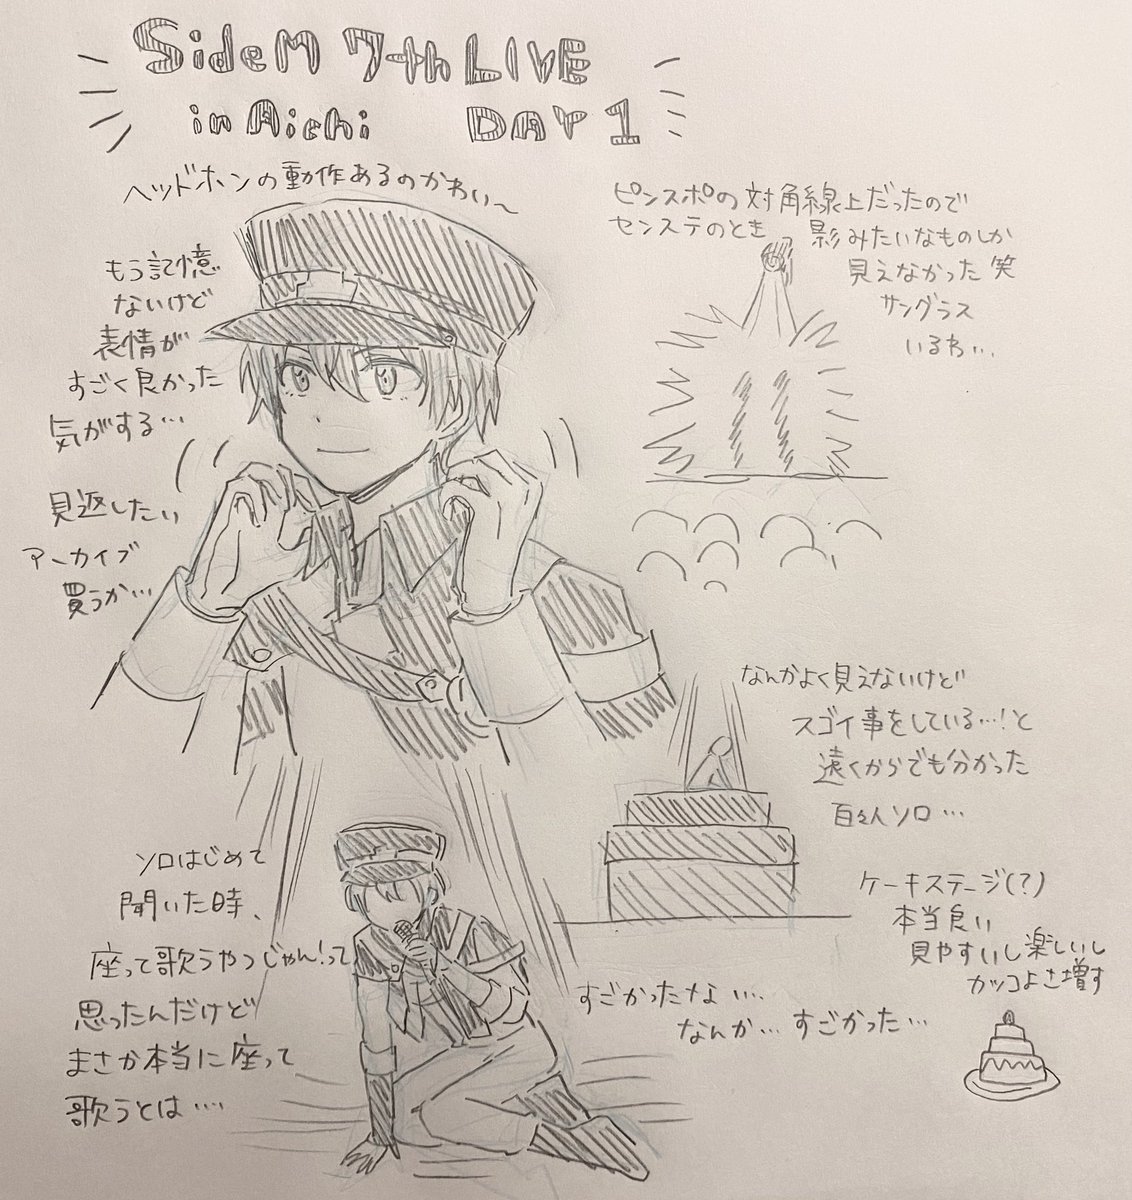 SideM 7th LIVE
in Aichi DAY 1
ヘッドホンの動作あるのかわい〜
もう記憶
ないけど
表情が
すごく良かった
気がする…
見返したい
アーカイブ
買うか…
ピンスポの対角線上だったので
センステのとき 影みたいなものしか
見えなかった笑
サングラス
いるわ…
なんかよく見えないけど
スゴイ事をしている…!と
遠くからでも分かった
百々人ソロ…
ケーキステージ(?)
本当良い
見やすいし楽しいし
カッコよさ増す
ソロはじめて
聞いた時、
座って歌うやつじゃん!って
思ったんだけど
まさか本当に座って
歌うとは…
すごかったな…
なんか…すごかった…